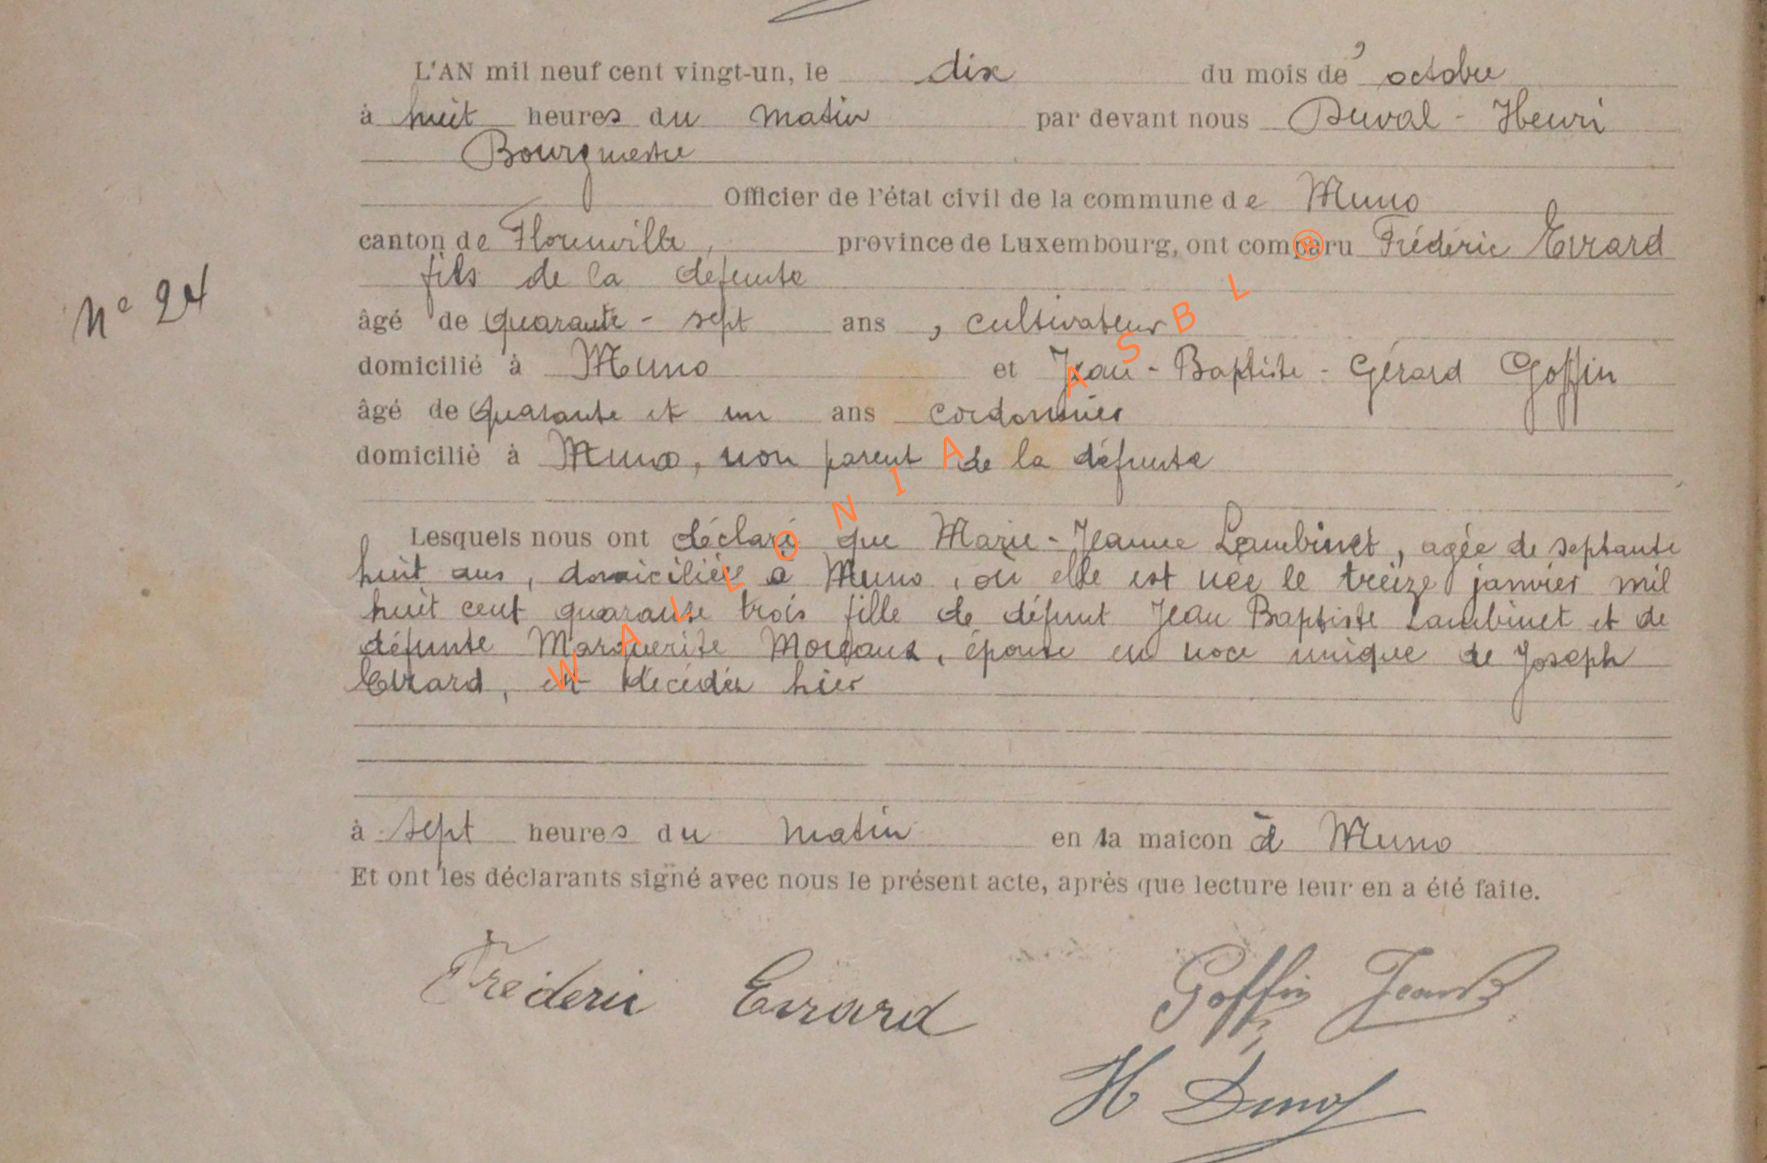 L'AN mil neuf cent vingt-un, le dix du mois de octobre
à huit heures du matin par devant nous Duval - Henri
Bourgmestre
Officier de l'état civil de la commune de Muno
canton de Florenville, province de Luxembourg, ont comparu Frédéric Evrard
fils de la défunte
âgé de quarante - sept ans, cultivateur
domicilié à Muno et Jean - Baptiste - Gérard Goffin
N° 24
âgé de quarante et un ans cordonnier
domicilié à Muno, non parent de la défunte
Lesquels nous ont déclaré que Marie - Jeanne Lambinet, agée de septante
huit ans, domiciliée à Muno, où elle est née le treize janvier mil
huit cent quarante trois fille de défunt Jean Baptiste Lambinet et de
défunte Marguerite Moreaux, épouse en noce unique de Joseph
Evrard, est décédée hier
à sept heures du matin en la maison à Muno
Et ont les déclarants signé avec nous le présent acte, après que lecture leur en a été faite.
Fréderic Evrard Goffin JeanB
H Duval
WALLONIA ASBL ®